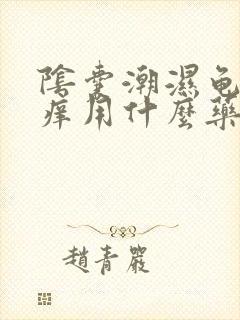 陰囊潮濕龟
痒用什麼藥
趙青嚴